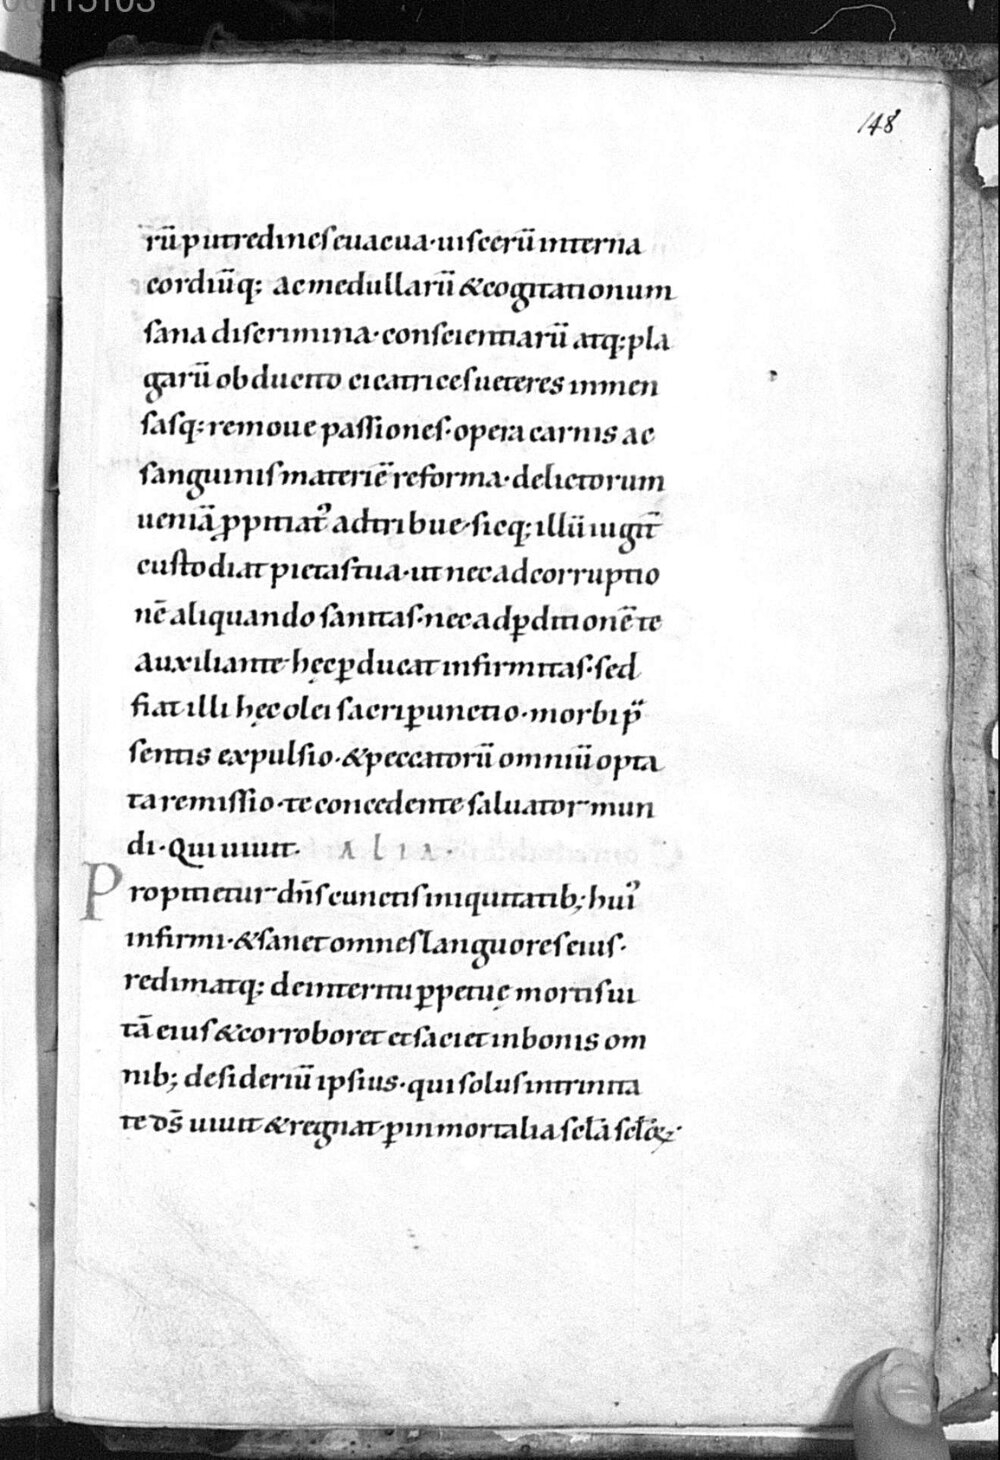 148
rū putredines euacua · uiscerū interna
cordiūq: ac medullarū & cogitationum
sana discrimina · conscientiarū atq: pla
garū obducito cicatrices ueteres inmen
sasq: remoue passiones · opera carnis ac
sanguinis materiē reforma · delictorum
ueniā ꝓpitiatꝰ adtribue · sicq; illū iugit̄
custodiat pietas tua · ut nec ad corruptio
nē aliquando sanitas · nec ad ꝑditionē te
auxiliante hęc ꝑducat infirmitas · sed
fiat illi hęc olei sacri ꝑunctio · morbi p̄
sentis expulsio · & peccatorū omniū opta
ta remissio · te concedente saluator mun
di · Qui uiuit. ALIA ·
Propitietur dn̄s cunctis iniquitatib; huiꝰ
infirmi · & sanet omnes languores eius ·
redimatq: de interitu ꝑpetuę mortis ui
tā eius & corroboret et saciet in bonis om
nib; desideriū ipsius · qui solus in trinita
te ds̄ uiuit & regnat · ꝑ inmortalia scl̄a scl̄oꝝ ·